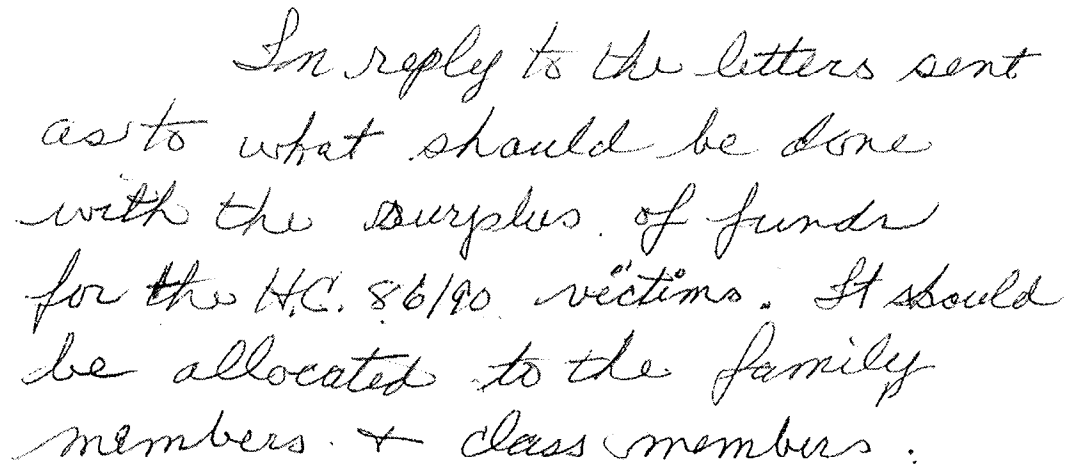 In reply to the letters sent
as to what should be done
with the surplus of funds
for the H.C. 86/90 victims. It should
be allocated to the family
members & class members.